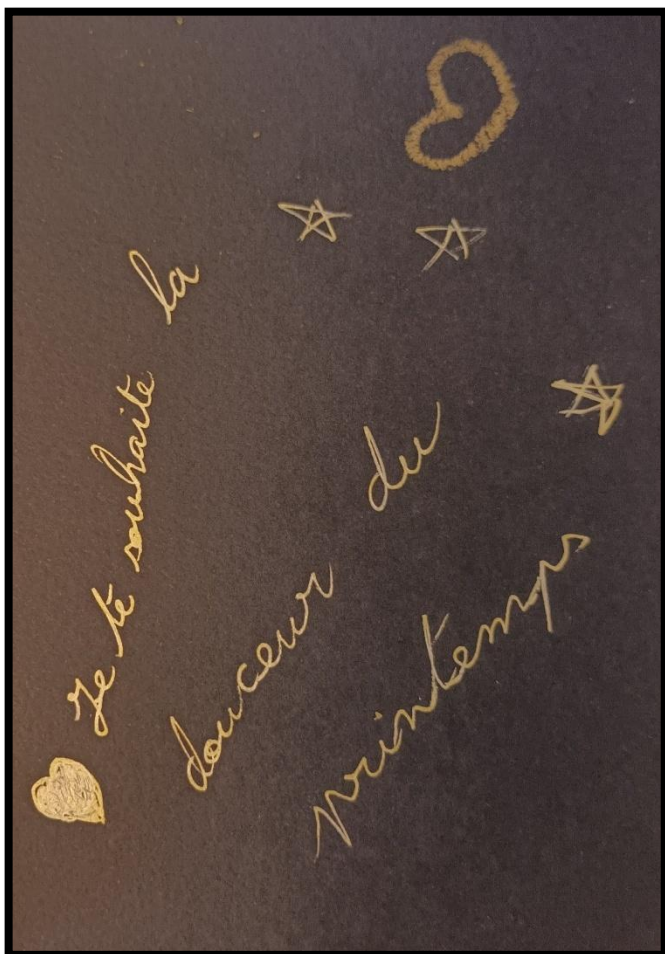 Je te souhaite la
douceur du
printemps